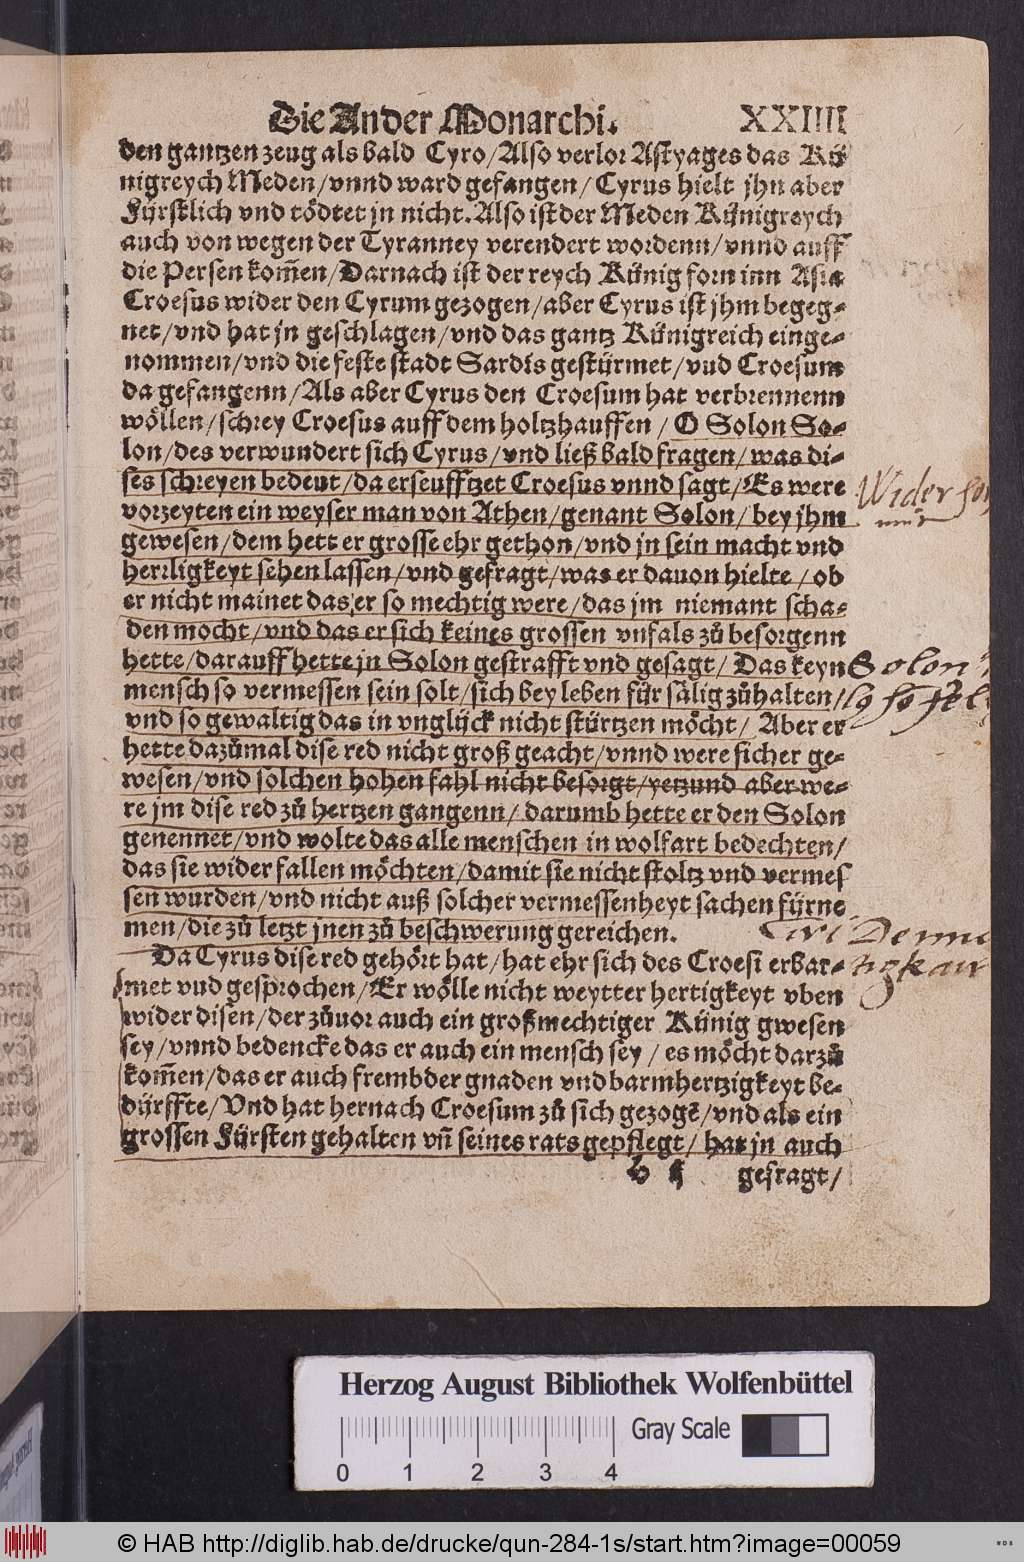 Die Ander Monarchi. XXIIII
den gantzen zeug als bald Cyro/Also verlor Astyages das Kü
nigreych Meden/vnnd ward gefangen/Cyrus hielt jhn aber
Fürstlich vnd tödtet jn nicht. Also ist der Meden Künigreych
auch von wegen der Tyranney verendert wordenn/vnnd auff
die Persen kom̄en/Darnach ist der reych Künig forn inn Asia
Croesus wider den Cyrum gezogen/aber Cyrus ist jhm begeg-
net/vnd hat jn geschlagen/vnd das gantz Künigreich einge-
nommen/vnd die feste stadt Sardis gestürmet/vud Croesum
da gefangenn/Als aber Cyrus den Croesum hat verbrennenn
wöllen/schrey Croesus auff dem holtzhauffen/O Solon So-
lon/des verwundert sich Cyrus/vnd ließ bald fragen/was di-
ses schreyen bedeut/da erseufftzet Croesus vnnd sagt/Es were
vorzeyten ein weyser man von Athen/genant Solon/bey jhm
gewesen/dem hett er grosse ehr gethon/vnd jn sein macht vnd
herrligkeyt sehen lassen/vnd gefragt/was er dauon hielte/ob
er nicht mainet das er so mechtig were/das jm niemant scha-
den mocht/vnd das er sich keines grossen vnfals zů besorgenn
hette/darauff hette jn Solon gestrafft vnd gesagt/Das keyn
mensch so vermessen sein solt/sich bey leben für sälig zůhalten/
vnd so gewaltig das in vnglück nicht stürtzen möcht/Aber er
hette dazůmal dise red nicht groß geacht/vnnd were sicher ge-
wesen/vnd solchen hohen fahl nicht besorgt/yetzund aber we-
re jm dise red zů hertzen gangenn/darumb hette er den Solon
genennet/vnd wolte das alle menschen in wolfart bedechten/
das sie wider fallen möchten/damit sie nicht stoltz vnd vermes
sen wurden/vnd nicht auß solcher vermessenheyt sachen fürne
men/die zů letzt jnen zů beschwerung gereichen.
Da Cyrus dise red gehört hat/hat ehr sich des Croesi erbar-
met vud gesprochen/Er wölle nicht weytter hertigkeyt vben
wider disen/der zůuor auch ein großmechtiger Künig gwesen
sey/vnnd bedencke das er auch ein mensch sey/es möcht darzů
kom̄en/das er auch frembder gnaden vnd barmhertzigkeyt be-
dürffte/Vnd hat hernach Croesum zů sich gezogē/vnd als ein
grossen Fürsten gehalten vn̄ seines rats gepflegt/hat jn auch
b ij gefragt/
Wider
Solon
Herzog August Bibliothek Wolfenbüttel
Gray Scale
0 1 2 3 4
© HAB http://diglib.hab.de/drucke/qun-284-1s/start.htm?image=00059